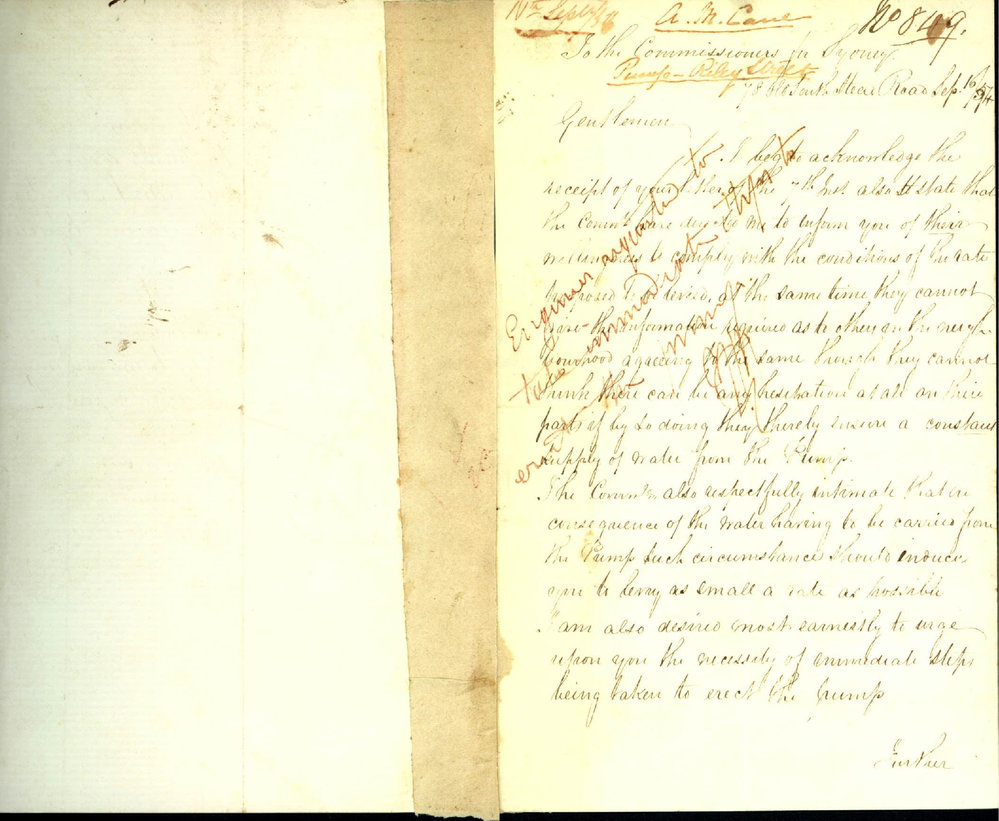 A. M. Cane
No 849.
To the Commissioners for Sydney
Pump - Riley Street
78 Old South Head Road Sep. 10/54
Gentlemen
I beg to acknowledge the
receipt of your letter of the 7th Inst. also to state that
the Commee have directed me to inform you of their
willingness to comply with the conditions of the rate
proposed to be levied, at the same time they cannot
give the information required as to others in the neigh
bourhood agreeing to the same though they cannot
think there can be any hesitation at all on their
parts if by so doing they thereby ensure a constant
supply of water from the Pump.
The Commee also respectfully intimate that in
consequence of the water having to be carried from
the Pump such circumstance should induce
you to levy as small a rate as possible
I am also desired most earnestly to urge
upon you the necessity of immediate steps
being taken to erect the pump
Further
Engineer requested to
take immediate steps to
erect the pump